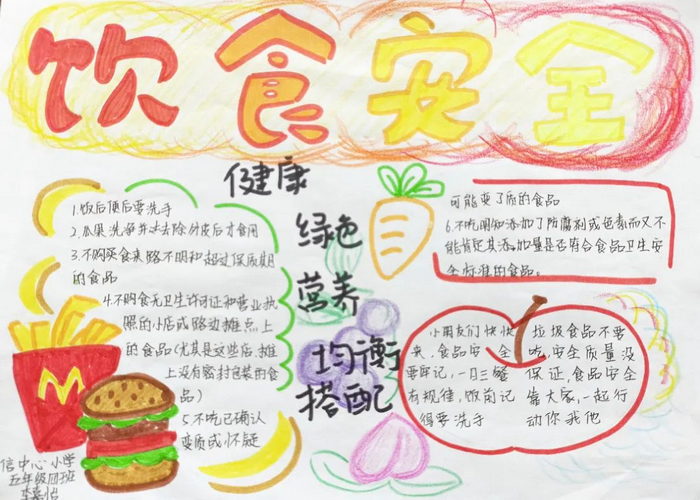 饮食安全
健康
绿色
营养
均衡
搭配
1.饭后便后要洗手
2.瓜果洗净并去除外皮后才食用
3.不购买食来路不明和超过保质期
的食品
4.不购食无卫生许可证和营业执
照的小店或路边摊点上
的食品(尤其是这些店、摊
上没有密封包装的食
品)
5.不吃已确认
变质或怀疑
可能变了质的食品
6.不吃明知添加了防腐剂或色素而又不
能肯定其添加量是否符合食品卫生安
全标准的食品。
小朋友们快快
来,食品安全
要牢记,一日三餐
有规律,饭前记
得要洗手
垃圾食品不要
吃,安全质量没
保证,食品安全
靠大家,一起行
动你我他
M
信中心小学
五年级四班